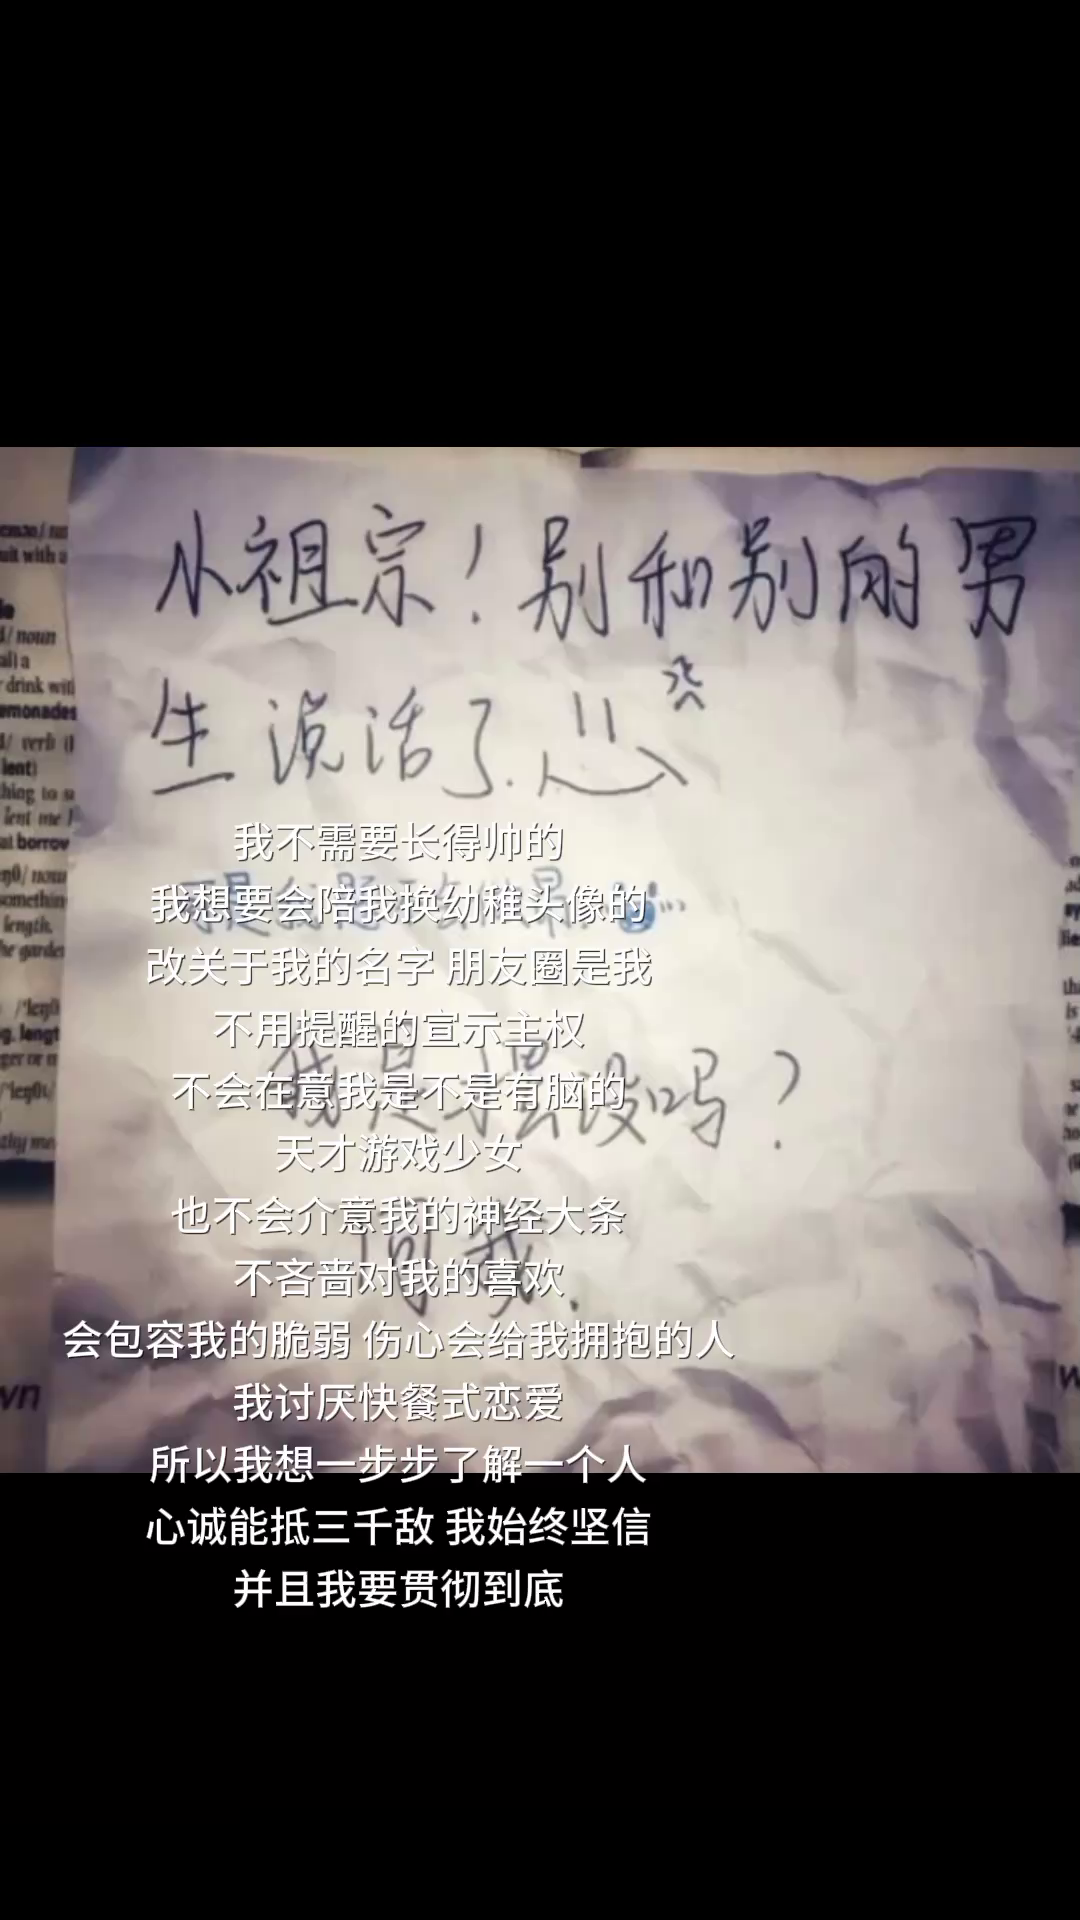 小祖宗!别和别的男
生说话了.
我不需要长得帅的
我想要会陪我换幼稚头像的
改关于我的名字 朋友圈是我
不用提醒的宣示主权
我是摆设吗?
不会在意我是不是有脑的
天才游戏少女
也不会介意我的神经大条
不吝啬对我的喜欢
会包容我的脆弱 伤心会给我拥抱的人
我讨厌快餐式恋爱
所以我想一步步了解一个人
心诚能抵三千敌 我始终坚信
并且我要贯彻到底